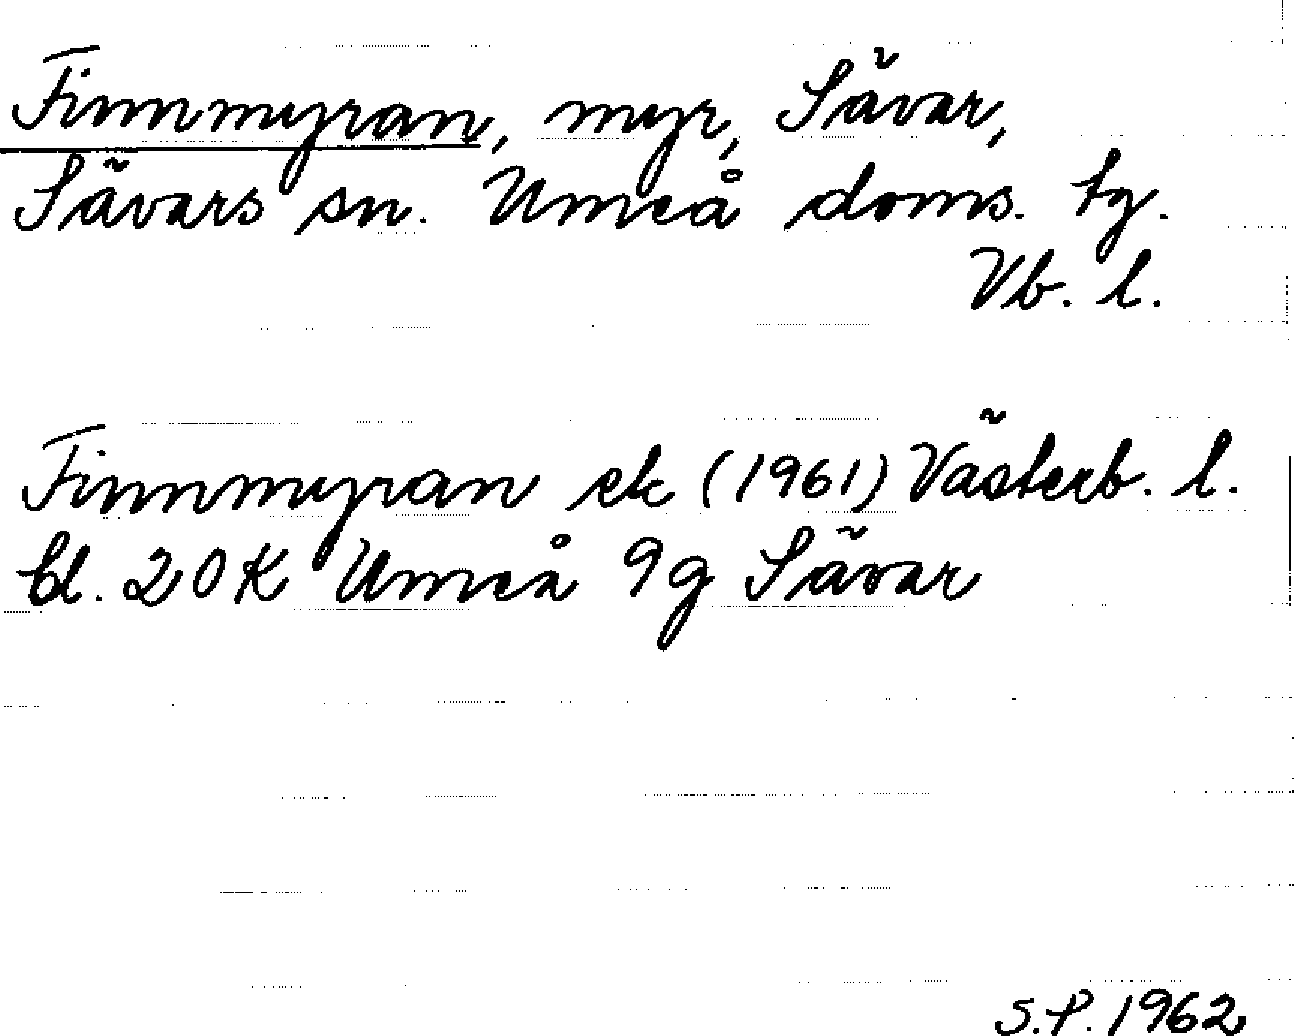 Finnmyran, myr, Sävar,
Sävars sn. Umeå doms. tg.
Vb. l.
Finnmyran ek (1961) Västerb. l.
bl. 20K Umeå 9g Sävar
S.P. 1962